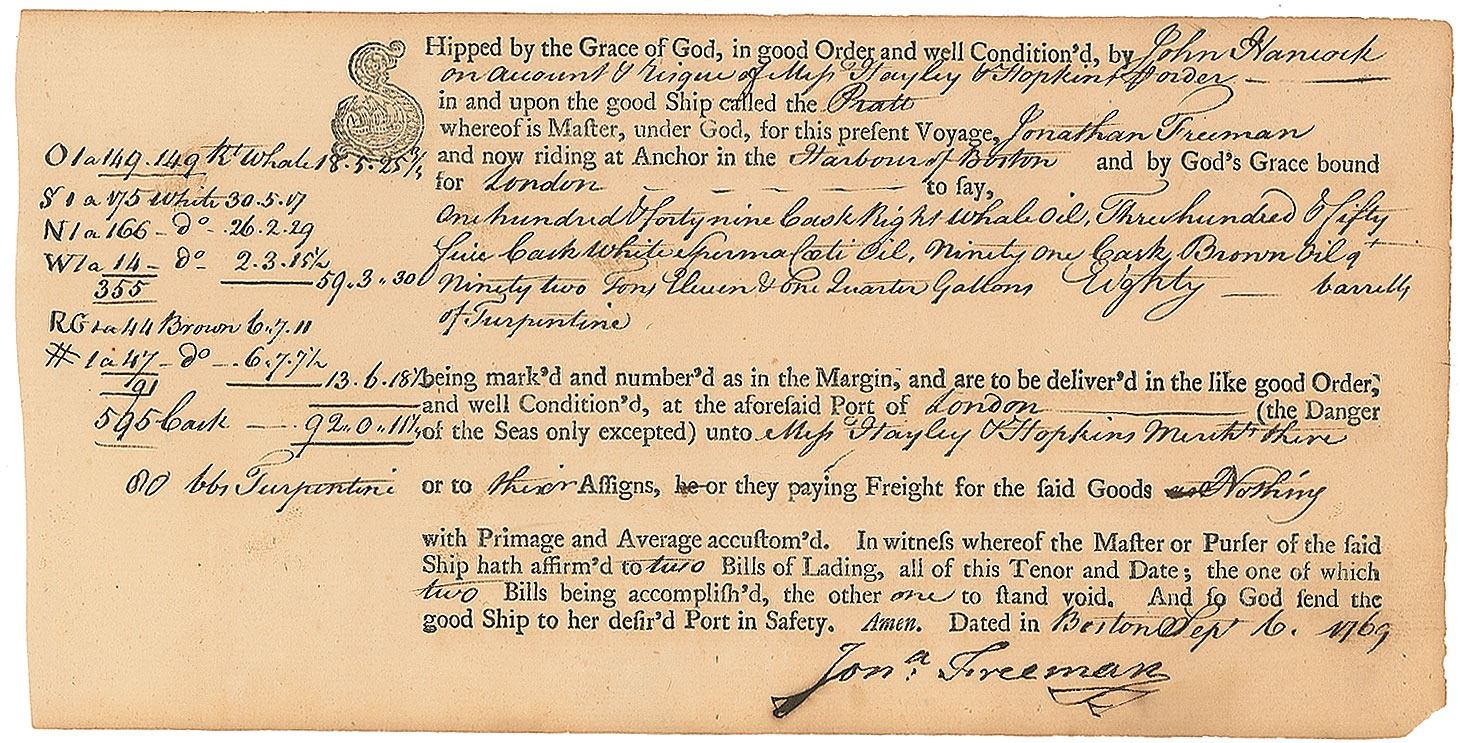 SHipped by the Grace of God, in good Order and well Condition'd, by John Hancock
on account & risque of Mess Hayley & Hopkins & order
in and upon the good Ship called the Pratt
whereof is Maſter, under God, for this preſent Voyage, Jonathan Freeman
and now riding at Anchor in the Harbour of Boston and by God's Grace bound
for London - - - - to ſay,
One hundred & forty nine Cask Right Whale Oil, Three hundred & fifty
five Cask White Sperma Cœti Oil, Ninety one Cask Brown Oil qt
Ninety two Tons Eleven & One Quarter Gallons Eighty — barrells
of Turpentine
O 1 a 149 . 149 Rt Whale 18.5.25 3/4
S 1 a 175 White 30.5.17
N 1 a 166 - do - 26.2.29
W 1 a 14 - do - 2.3.15½
355 59.3.30
RG 1 a 44 Brown 6.7.11
# 1 a 47 - do - 6.7.7½
91 13.6.18½
595 Cask — 92.0.11¼
80 bbs Turpentine
being mark'd and number'd as in the Margin, and are to be deliver'd in the like good Order,
and well Condition'd, at the aforeſaid Port of London (the Danger
of the Seas only excepted) unto Mess Hayley & Hopkins Mercht's there
or to their Aſſigns, he or they paying Freight for the ſaid Goods Nothing
with Primage and Average accuſtom'd. In witneſs whereof the Maſter or Purſer of the ſaid
Ship hath affirm'd to two Bills of Lading, all of this Tenor and Date; the one of which
two Bills being accompliſh'd, the other one to ſtand void. And ſo God ſend the
good Ship to her deſir'd Port in Safety. Amen. Dated in Boston Sept 6. 1769
Jona. Freeman